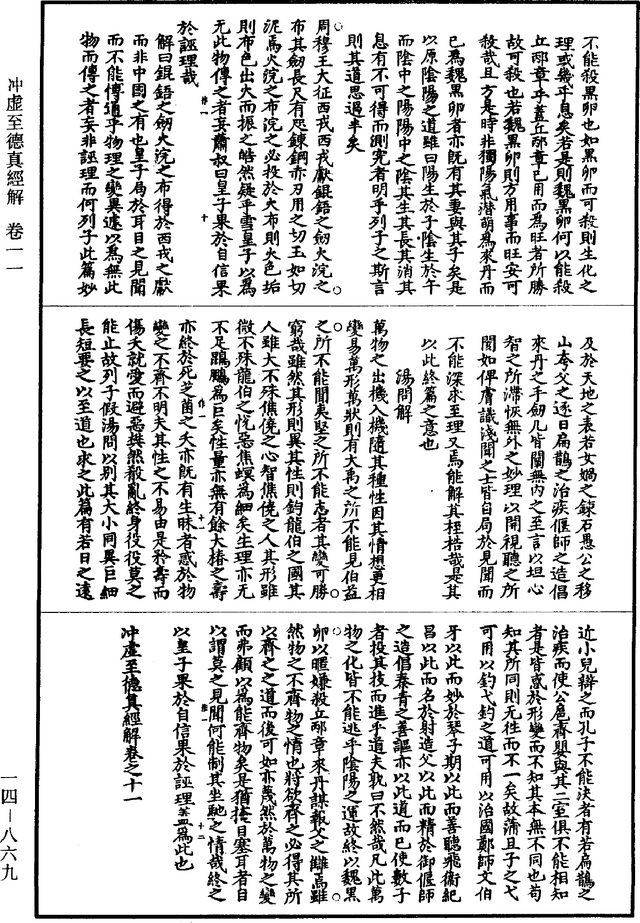 不能殺黑卵也如黑卵而可殺則生化之
理或幾乎息矣若是則魏黑卵何以能殺
丘邴章乎蓋丘邴章已用而為旺者所勝
故可殺也若魏黑卵則方用事而旺安可
殺哉且方是時非獨陽氣潜萌為來丹而
已為魏黑卵者亦既有其妻與其子矣是
以原陰陽之道雖曰陽生於子陰生於午
而陰中之陽陽中之陰其生其長其消其
息有不可得而測究者明乎列子之斯言
則其道思過半矣
周穆王大征西戎西戎獻錕鋙之劒火浣之
布其劒長尺有咫鍊鋼赤刃用之切玉如切
泥焉火浣之布浣之必投於火布則火色垢
則布色出火而振之皓然疑乎雪皇子以為
無此物傳之者妄蕭叔曰皇子果於自信果
於誣理哉
解曰錕鋙之劒火浣之布得於西戎之獻
而非中國之有也皇子局於耳目之見聞
而不能博通乎物理之變異遽以為無此
物而傳之者妄非誣理而何列子此篇妙
及於天地之表若女媧之鍊石愚公之移
山夸父之逐日扁鵲之治疾偃師之造倡
來丹之手劒凡皆闡無內之至言以坦心
智之所滯恢無外之妙理以開視聽之所
閡如俾膚識淺聞之士皆自局於見聞而
不能深求至理又焉能解其桎梏哉是其
以此終篇之意也
湯問解
萬物之出機入機隨其種性因其情想更相
變易萬形萬狀則有大萬之所不能見伯益
之所不能聞夷堅之所不能志者其變可勝
窮哉雖然其形則異其性則鈞龍伯之國其
人雖大不殊僬僥之心智僬僥之人其形雖
微不殊龍伯之恱惡焦螟為細矣生理亦无
不足鵾鵬為巨矣性量亦無有餘大椿之壽
亦終於死芝菌之夭亦既有生昧者惑於物
變之不齊不明夫其性之不易由是矜壽而
傷夭就愛而避惡樊然殽亂終身役役莫之
能止故列子假湯問以别其大小同異巨細
長短要之以至道也求之此篇有若日之遠
近小兒辯之而孔子不能决者有若扁鵲之
治疾而使公扈齊嬰與其二室俱不能相知
者是皆惑於形變而不知其本無不同也苟
知其所同則无徃而不一矣故蒲且子之弋
可用以釣弋釣之道可用以治國鄭師文伯
牙以此而妙於琴子期以此而善聽飛衛紀
昌以此而名於射造父以此而精於御偃師
之造倡秦青之善謳亦以此道而已使數子
者投其技而進乎道夫孰曰不然哉凡此萬
物之化皆不能逃乎陰陽之運故終以魏黑
卵以暱嫌殺丘邴章來丹謀報父之讎焉雖
然物之不齊物之情也將欲齊之必得其所
以齊之之道而後可如亦蔑然於萬物之變
而弗顧以為能齊物矣是猶掩目塞耳者自
以謂莫之見聞何能制其坐馳之情哉終之
以皇子果於自信果於誣理蓋為此也
冲虛至德真經解卷之十一
冲虛至德真經解 卷一一
一四－八六九